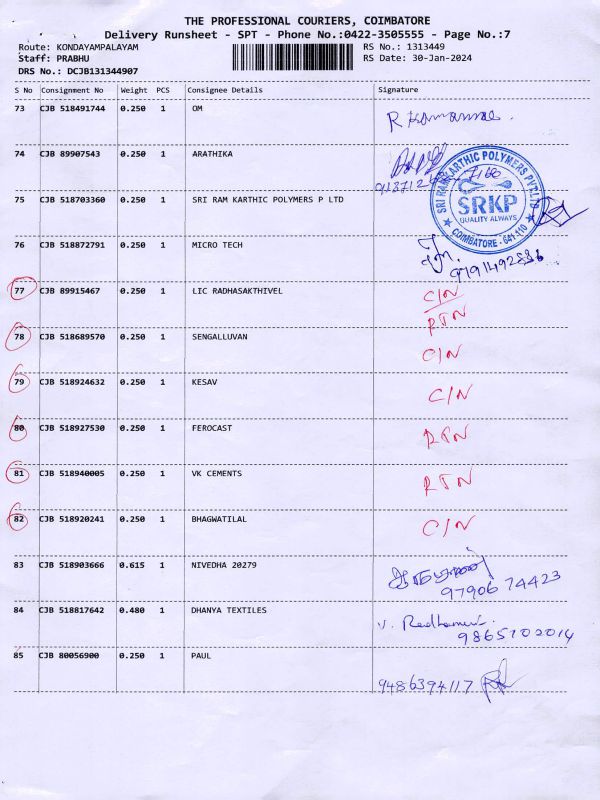 THE PROFESSIONAL COURIERS, COIMBATORE
Delivery Runsheet - SPT - Phone No.:0422-3505555 - Page No.:7
Route: KONDAYAMPALAYAM RS No.: 1313449
Staff: PRABHU RS Date: 30-Jan-2024
DRS No.: DCJB131344907
S No Consignment No Weight PCS Consignee Details Signature
73 CJB 518491744 0.250 1 OM
74 CJB 89907543 0.250 1 ARATHIKA
75 CJB 518703360 0.250 1 SRI RAM KARTHIC POLYMERS P LTD
SRI RAM KARTHIC POLYMERS PVT.LTD
SRKP
QUALITY ALWAYS
COIMBATORE - 641 110
76 CJB 518872791 0.250 1 MICRO TECH
77 CJB 89915467 0.250 1 LIC RADHASAKTHIVEL C/N
RTN
78 CJB 518689570 0.250 1 SENGALLUVAN C/N
79 CJB 518924632 0.250 1 KESAV C/N
80 CJB 518927530 0.250 1 FEROCAST RTN
81 CJB 518940005 0.250 1 VK CEMENTS RTN
82 CJB 518920241 0.250 1 BHAGWATILAL C/N
83 CJB 518903666 0.615 1 NIVEDHA 20279
97906 74423
84 CJB 518817642 0.480 1 DHANYA TEXTILES
9865702014
85 CJB 80056900 0.250 1 PAUL
9486394117